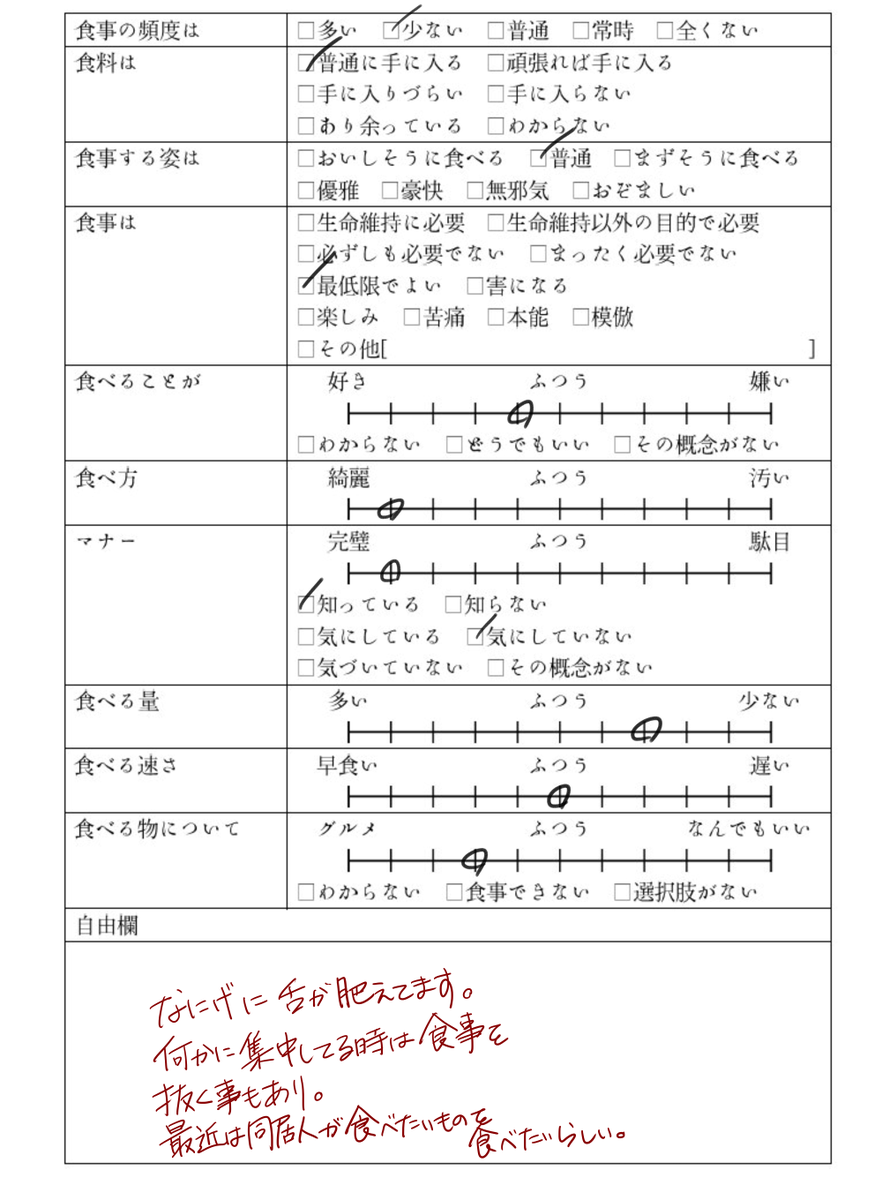 食事の頻度は □多い □少ない □普通 □常時 □全くない
食料は □普通に手に入る □頑張れば手に入る
□手に入りづらい □手に入らない
□あり余っている □わからない
食事する姿は □おいしそうに食べる □普通 □まずそうに食べる
□優雅 □豪快 □無邪気 □おぞましい
食事は □生命維持に必要 □生命維持以外の目的で必要
□必ずしも必要でない □まったく必要でない
□最低限でよい □害になる
□楽しみ □苦痛 □本能 □模倣
□その他[ ]
食べることが 好き ふつう 嫌い
□わからない □どうでもいい □その概念がない
食べ方 綺麗 ふつう 汚い
マナー 完璧 ふつう 駄目
□知っている □知らない
□気にしている □気にしていない
□気づいていない □その概念がない
食べる量 多い ふつう 少ない
食べる速さ 早食い ふつう 遅い
食べる物について グルメ ふつう なんでもいい
□わからない □食事できない □選択肢がない
自由欄
なにげに舌が肥えてます。
何かに集中してる時は食事を
抜く事もあり。
最近は同居人が食べたいものを
食べたいらしい。